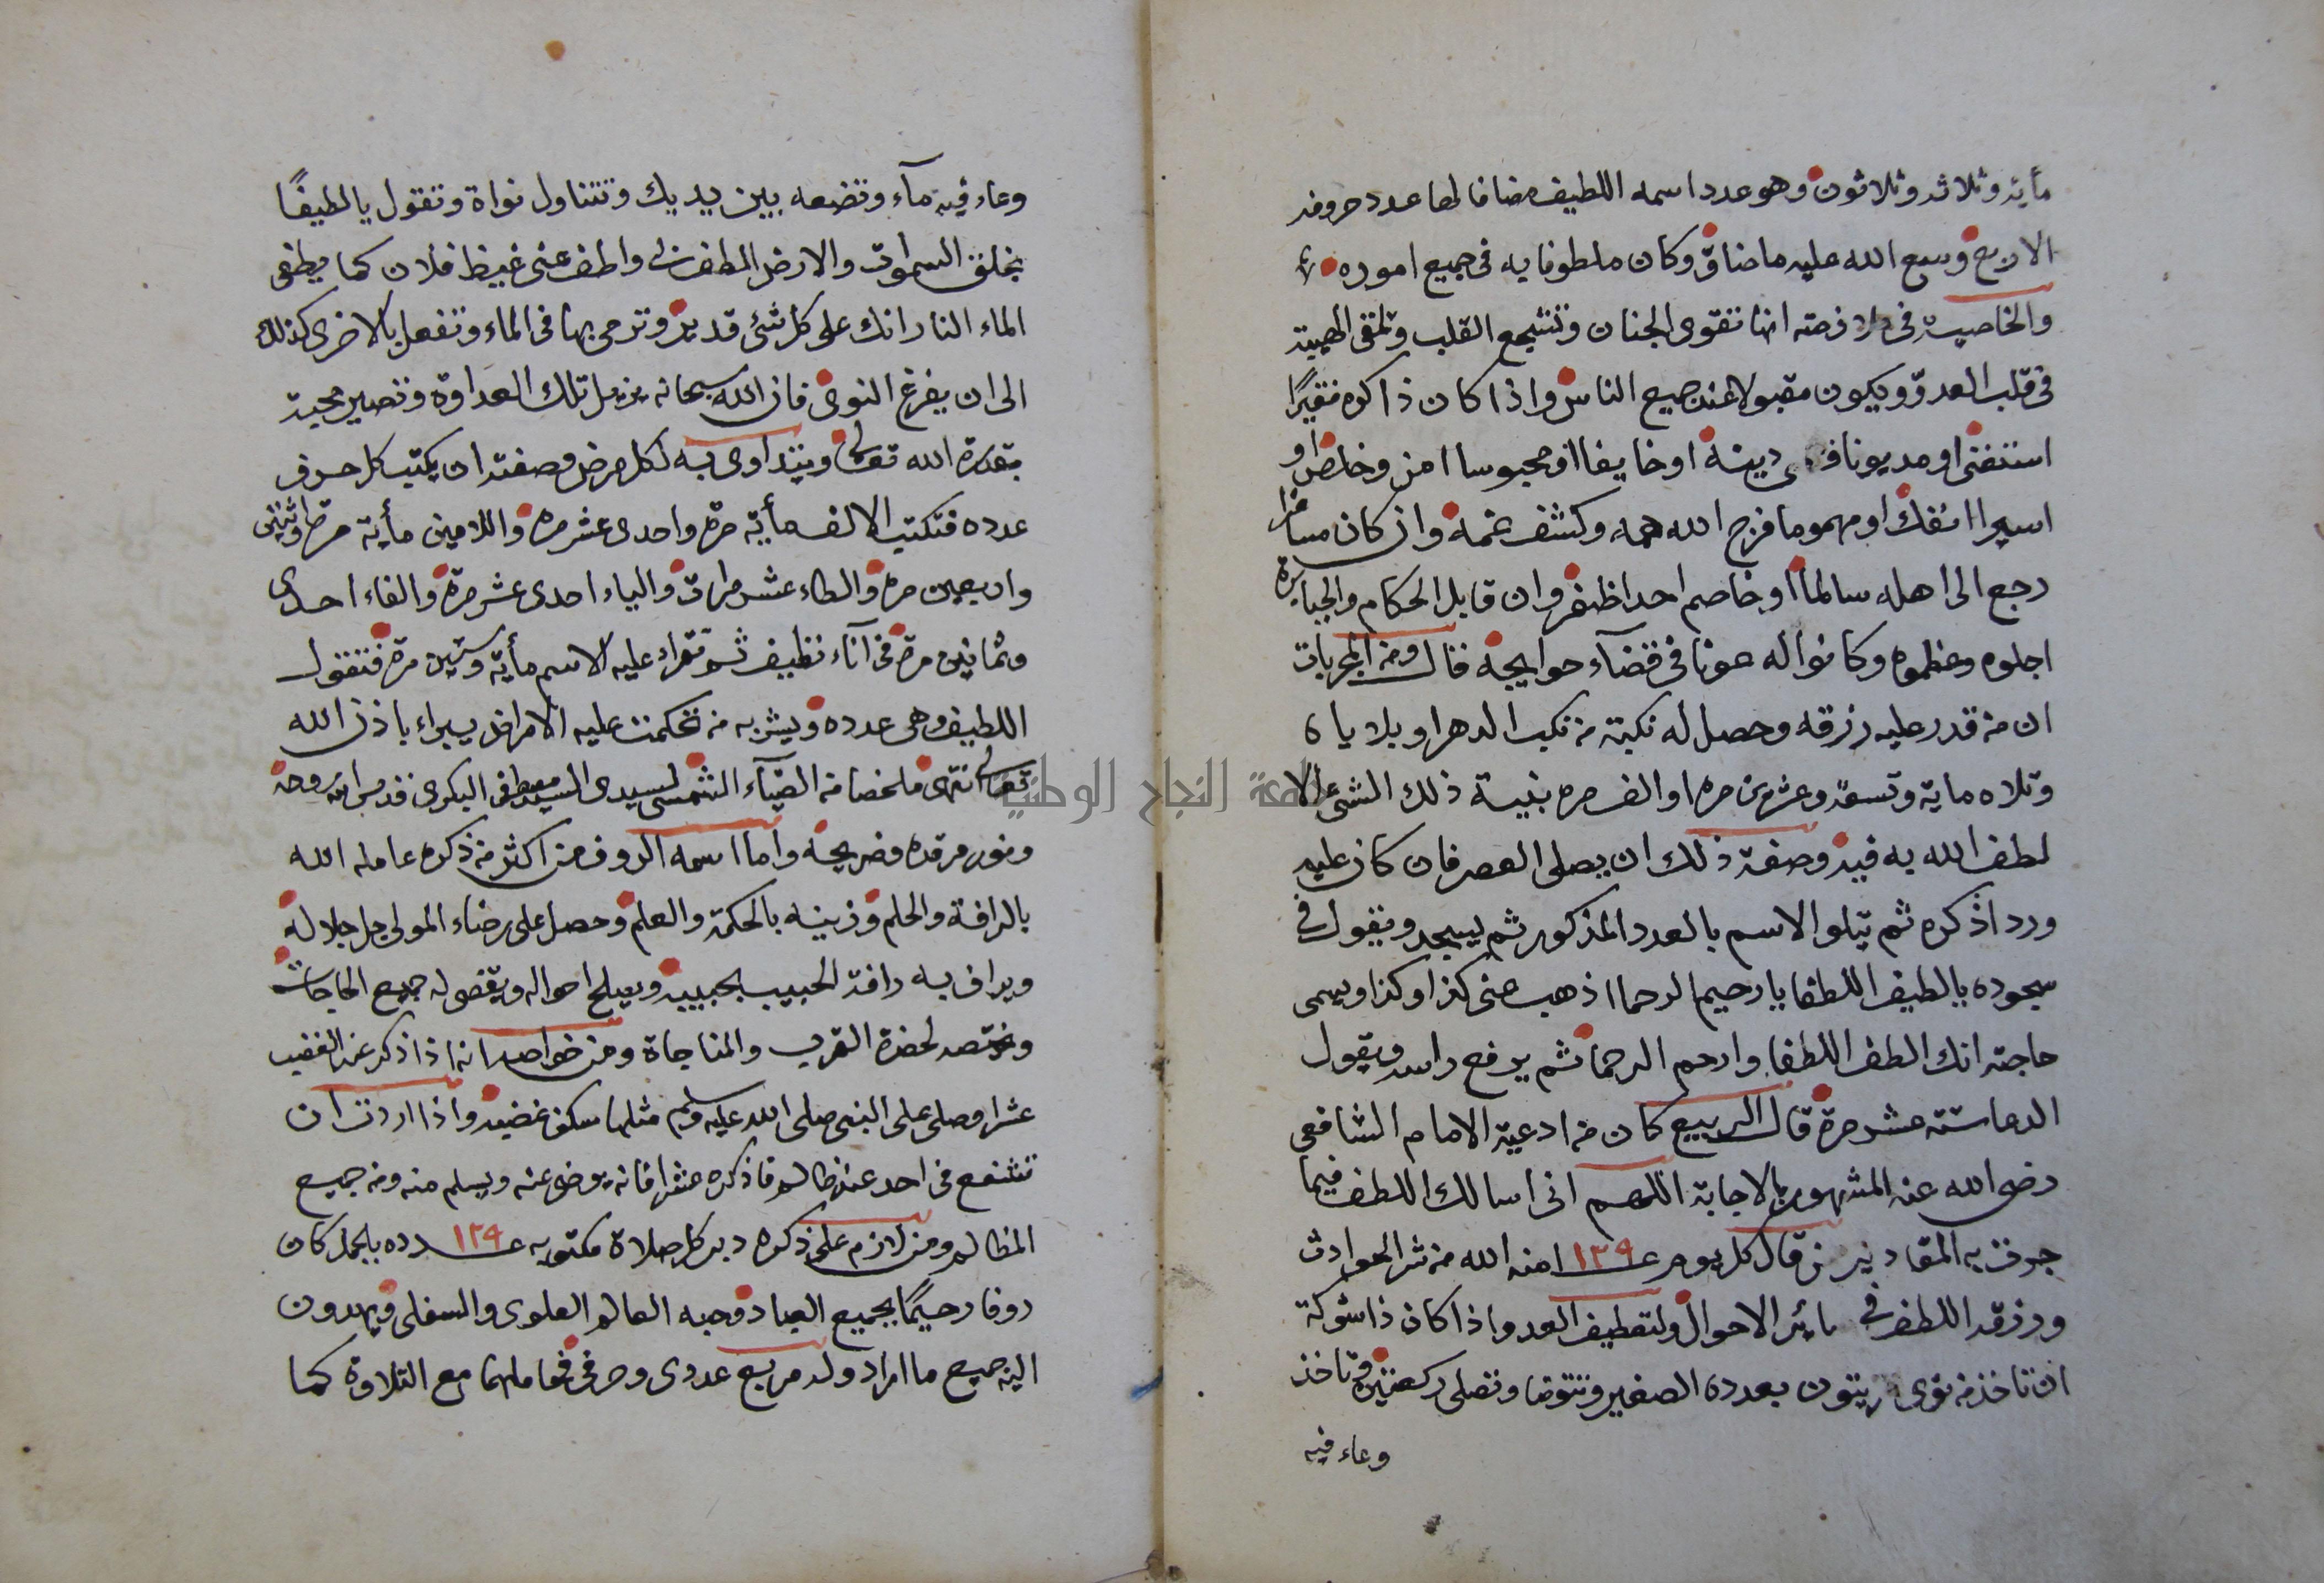 مأية وثلاثة وثلاثون وهو عدد اسمه اللطيف مضافا لها عدد حروفه
الاربع وسع الله عليه ما ضاق وكان ملطوفا به في جميع اموره
والخاصية في ملازمته انها تقوى الجنان وتشجع القلب وتلقى الهيبة
في قلب العدو ويكون مقبولا عند جميع الناس واذا كان ذاكره فقيرًا
استغنى او مديونا دينه او خايفا او محبوسا امن وخلص او
اسيرا انفك او مهموما فرج الله همه وكشف غمه وان كان مسافرا
رجع الى اهله سالما او خاصم احدا ظفر وان قابل الحكام والجبابرة
اجلوه وعظموه وكانوا له عونا في قضآء حوايجه قال ومن المجربات
ان من قدر عليه رزقه وحصل له نكبة من نكب الدهر او بلايا
وتلاه ماية وتسعة وعشرين مره او الف مره بنية ذلك الشئ الا
لطف الله به فيه وصفة ذلك ان يصلى العصر فان كان عليه
ورد اذكره ثم يتلو الاسم بالعدد المذكور ثم ليسجد ويقول في
سجوده يا لطيف اللطفا يا رحيم الرحما اذهب عنى كذا وكذا ويسمى
حاجته انك الطف اللطفا وارحم الرحما ثم يرفع راسه ويقول
الدعا ستة عشر مرة قال الربيع كان من ادعية الامام الشافعى
رضى الله عنه المشهور بالاجابة اللهم انى اسالك اللطف فيما
جرت به المقادير من قال كل يوم عـــ ١٢٩ امنه الله من شر الحوادث
ورزقه اللطف في سائر الاحوال ولتعطيف العدو اذا كان ذا شوكة
ان تاخذ من نوى زيتون بعدده الصغير وتتوضا وتصلى ركعتين وتاخذ
وعاء فيه
وعاء فيه مآء وتضعه بين يديك وتتناول نواة وتقول يا لطيفًا
بخلق السموات والارض الطف بى واطف عنى غيظ فلان كما يطفى
الماء النار انك على كل شئ قدير وترمى بها في الماء وتفعل بالاخرى كذلك
الى ان يفرغ النوى فان الله سبحانه يزيل تلك العداوة وتصير محبة
بقدرة الله تعالى ويتداوى به لكل مرض وصفته ان يكتب كل حرف
عدده فتكتب الالف مأية مرة واحدى عشر مره واللامين مأية مرة واثنتى
واربعين مره والطاء عشر مرات والياء احدى عشر مرة والفاء احدى
وثمانين مرة في آناء نظيف ثم تقراء عليه الاسم مأية وستين مرة فتقول
اللطيف وهى عدده ويشربه من تحكمت عليه الامراض يبراء باذن الله
تعالى انتهى ملخصا من الضيآء الشمسى لسيدى السيد مصطفى البكرى قدس الله روحه
ونور مرقده وضريحه واما اسمه الروف من اكثر من ذكره عامله الله
بالرافة والحلم وزينه بالحكمة والعلم وحصل على رضاء المولى جل جلاله
ويراف به رافة الحبيب بحبيبه ويصلح احواله ويقضى له جميع الحاجات
ويختصه لحضرة القرب والمناجاة ومن خواصه انه اذا ذكر عند الغضب
عشرا وصلى على النبى صلى الله عليه وسلم مثلها سكن غضبه واذا اردت ان
تشفع في احد عند ظالم فاذكره عشرا فانه يرضى عنه ويسلم منه ومن جميع
المظالم ومن لازم على ذكره دبر كل صلاة مكتوبه عـــدده بالجمل كان ١٢٩
روفا رحيمًا بجميع العباد وحبه العالم العلوى والسفلى ويهدون
اليه جميع ما اراد وله مربع عددى وحرفى فحاملهما مع التلاوة كما
جامعة النجاح الوطنية